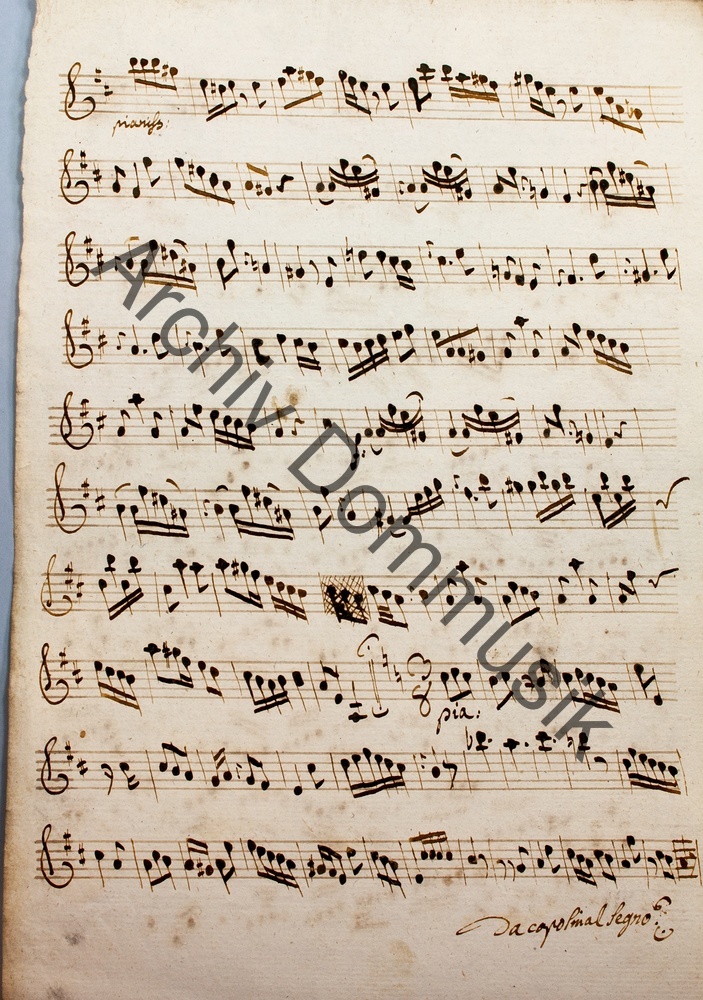 pianiss:
Archiv Dommusik
pia:
Da capo sinal Segno